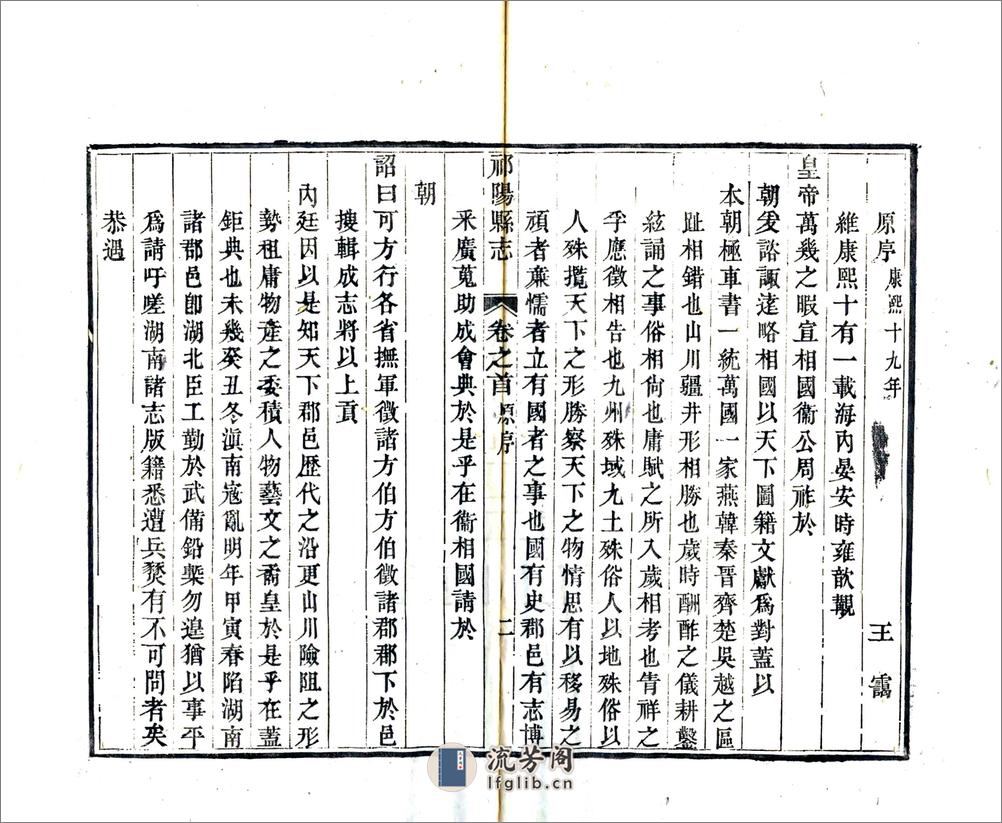 原序 康熙十九年 王霱
維康熙十有一載海內晏安時雍歆覯
皇帝萬幾之暇宣相國衞公周祚於
朝爰諮諏逹略相國以天下圖籍文獻為對蓋以
本朝極車書一統萬國一家燕韓秦晉齊楚吳越之區
趾相錯也山川疆井形相勝也歲時酬酢之儀耕鑿
絃誦之事俗相尙也庸賦之所入歲相考也眚祥之
乎應徵相告也九州殊域九土殊俗人以地殊俗以
人殊攬天下之形勝察天下之物情思有以移易之
頑者亷懦者立有國者之事也國有史郡邑有志博
祁陽縣志 卷之首 原序 二
釆廣蒐助成會典於是乎在衞相國請於
朝
詔曰可方行各省撫軍徵諸方伯方伯徵諸郡郡下於邑
搜輯成志將以上貢
內廷因以是知天下郡邑歷代之沿更山川險阻之形
勢租庸物產之委積人物藝文之矞皇於是乎在蓋
鉅典也未幾癸丑冬滇南寇亂明年甲寅春陷湖南
諸郡邑卽湖北臣工勤於武備鉛槧勿遑猶以事平
為請吁嗟湖南諸志版籍悉遭兵燹有不可問者矣
恭遇
流芳阁
lfglib.cn